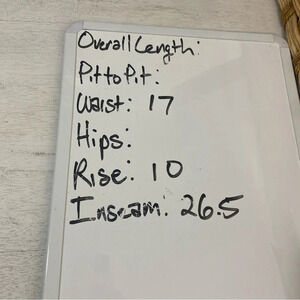 Overall Length:
Pit to Pit:
Waist: 17
Hips:
Rise: 10
Inseam: 26.5